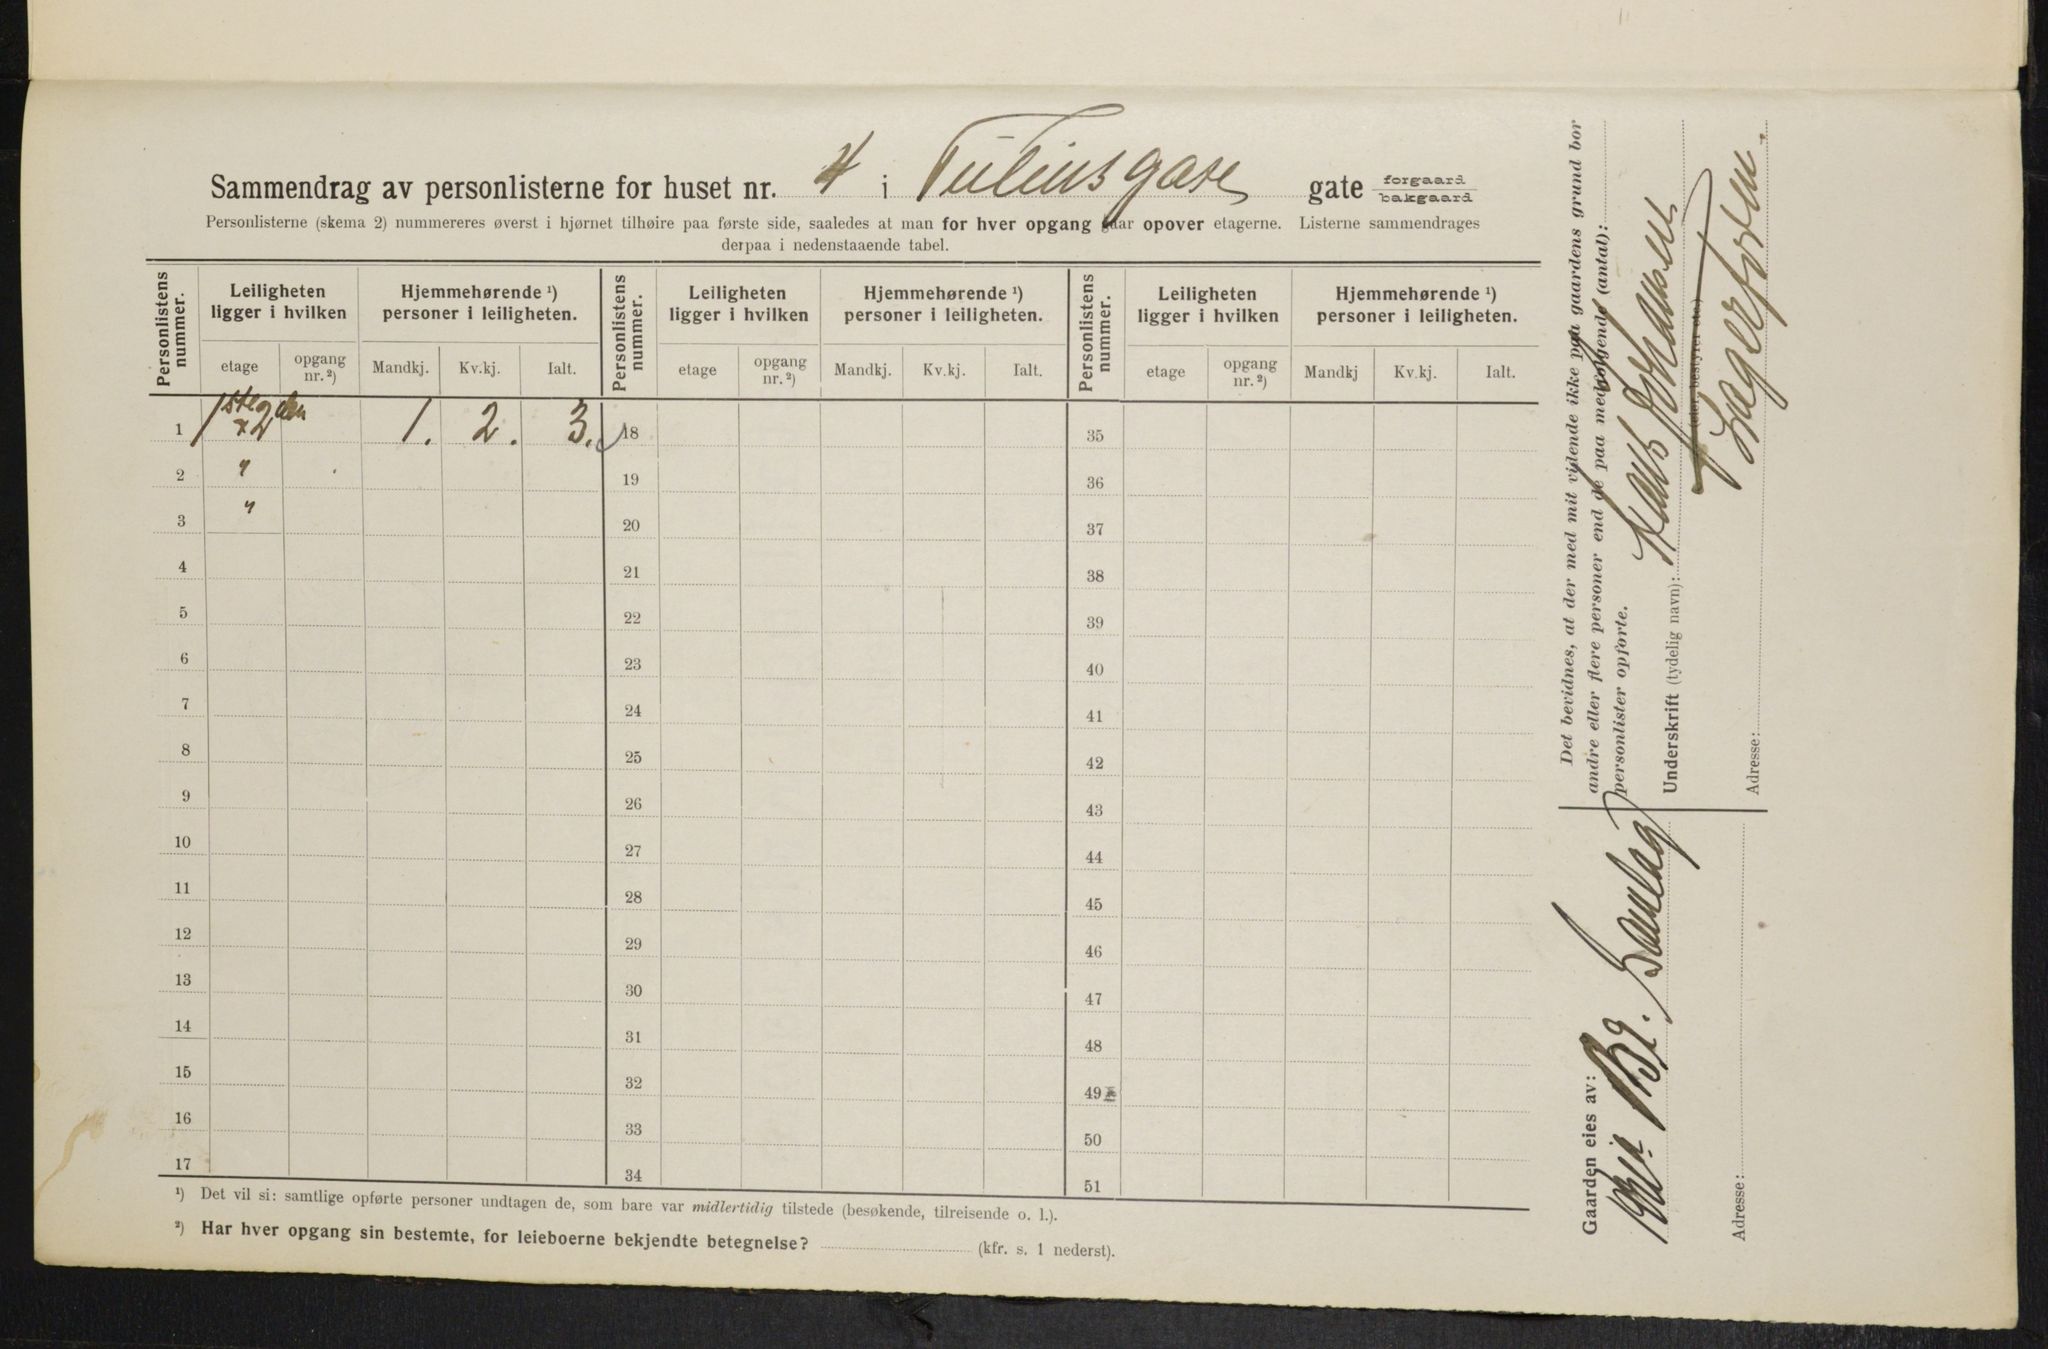 Sammendrag av personlisterne for huset nr. 4 i Tulinsgate gate forgaard bakgaard
Personlisterne (skema 2) nummereres øverst i hjørnet tilhøire paa første side, saaledes at man for hver opgang gaar opover etagerne. Listerne sammendrages
derpaa i nedenstaaende tabel.
Personlistens nummer.
Leiligheten ligger i hvilken
Hjemmehørende ¹) personer i leiligheten.
etage opgang nr. ²) Mandkj. Kv.kj. Ialt.
Personlistens nummer.
Leiligheten ligger i hvilken
Hjemmehørende ¹) personer i leiligheten.
etage opgang nr. ²) Mandkj. Kv.kj. Ialt.
Personlistens nummer.
Leiligheten ligger i hvilken
Hjemmehørende ¹) personer i leiligheten.
etage opgang nr. ²) Mandkj Kv.kj. Ialt.
1 1ste og 2den 1. 2. 3. 18 35
2 " 19 36
3 " 20 37
4 21 38
5 22 39
6 23 40
7 24 41
8 25 42
9 26 43
10 27 44
11 28 45
12 29 46
13 30 47
14 31 48
15 32 49
16 33 50
17 34 51
¹) Det vil si: samtlige opførte personer undtagen de, som bare var midlertidig tilstede (besøkende, tilreisende o. l.).
²) Har hver opgang sin bestemte, for leieboerne bekjendte betegnelse? (kfr. s. 1 nederst).
Det bevidnes, at der med mit vidende ikke paa gaardens grund bor
andre eller flere personer end de paa medfølgende (antal):
personlister opførte.
Underskrift (tydelig navn): Hans Johansen
(eier, bestyrer etc.)
Lagerform.
Adresse:
Gaarden eies av:
Adresse: